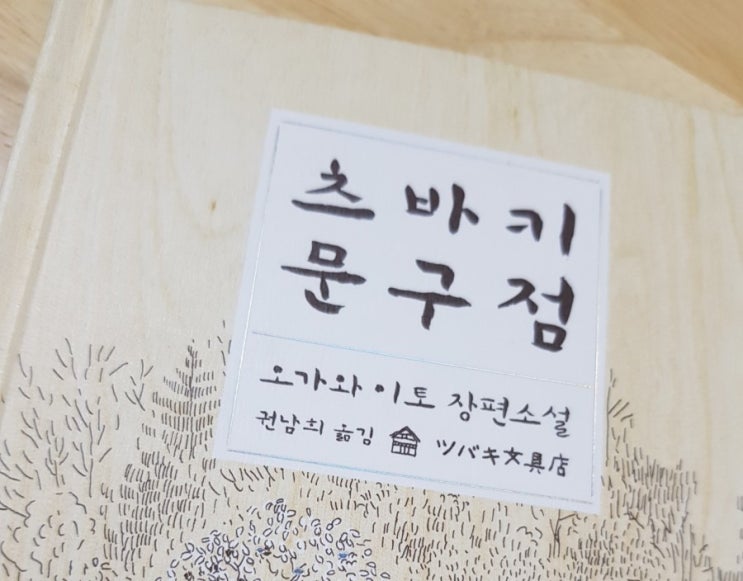 츠바키
문구점
오가와 이토 장편소설
권남희 옮김 ツバキ文具店